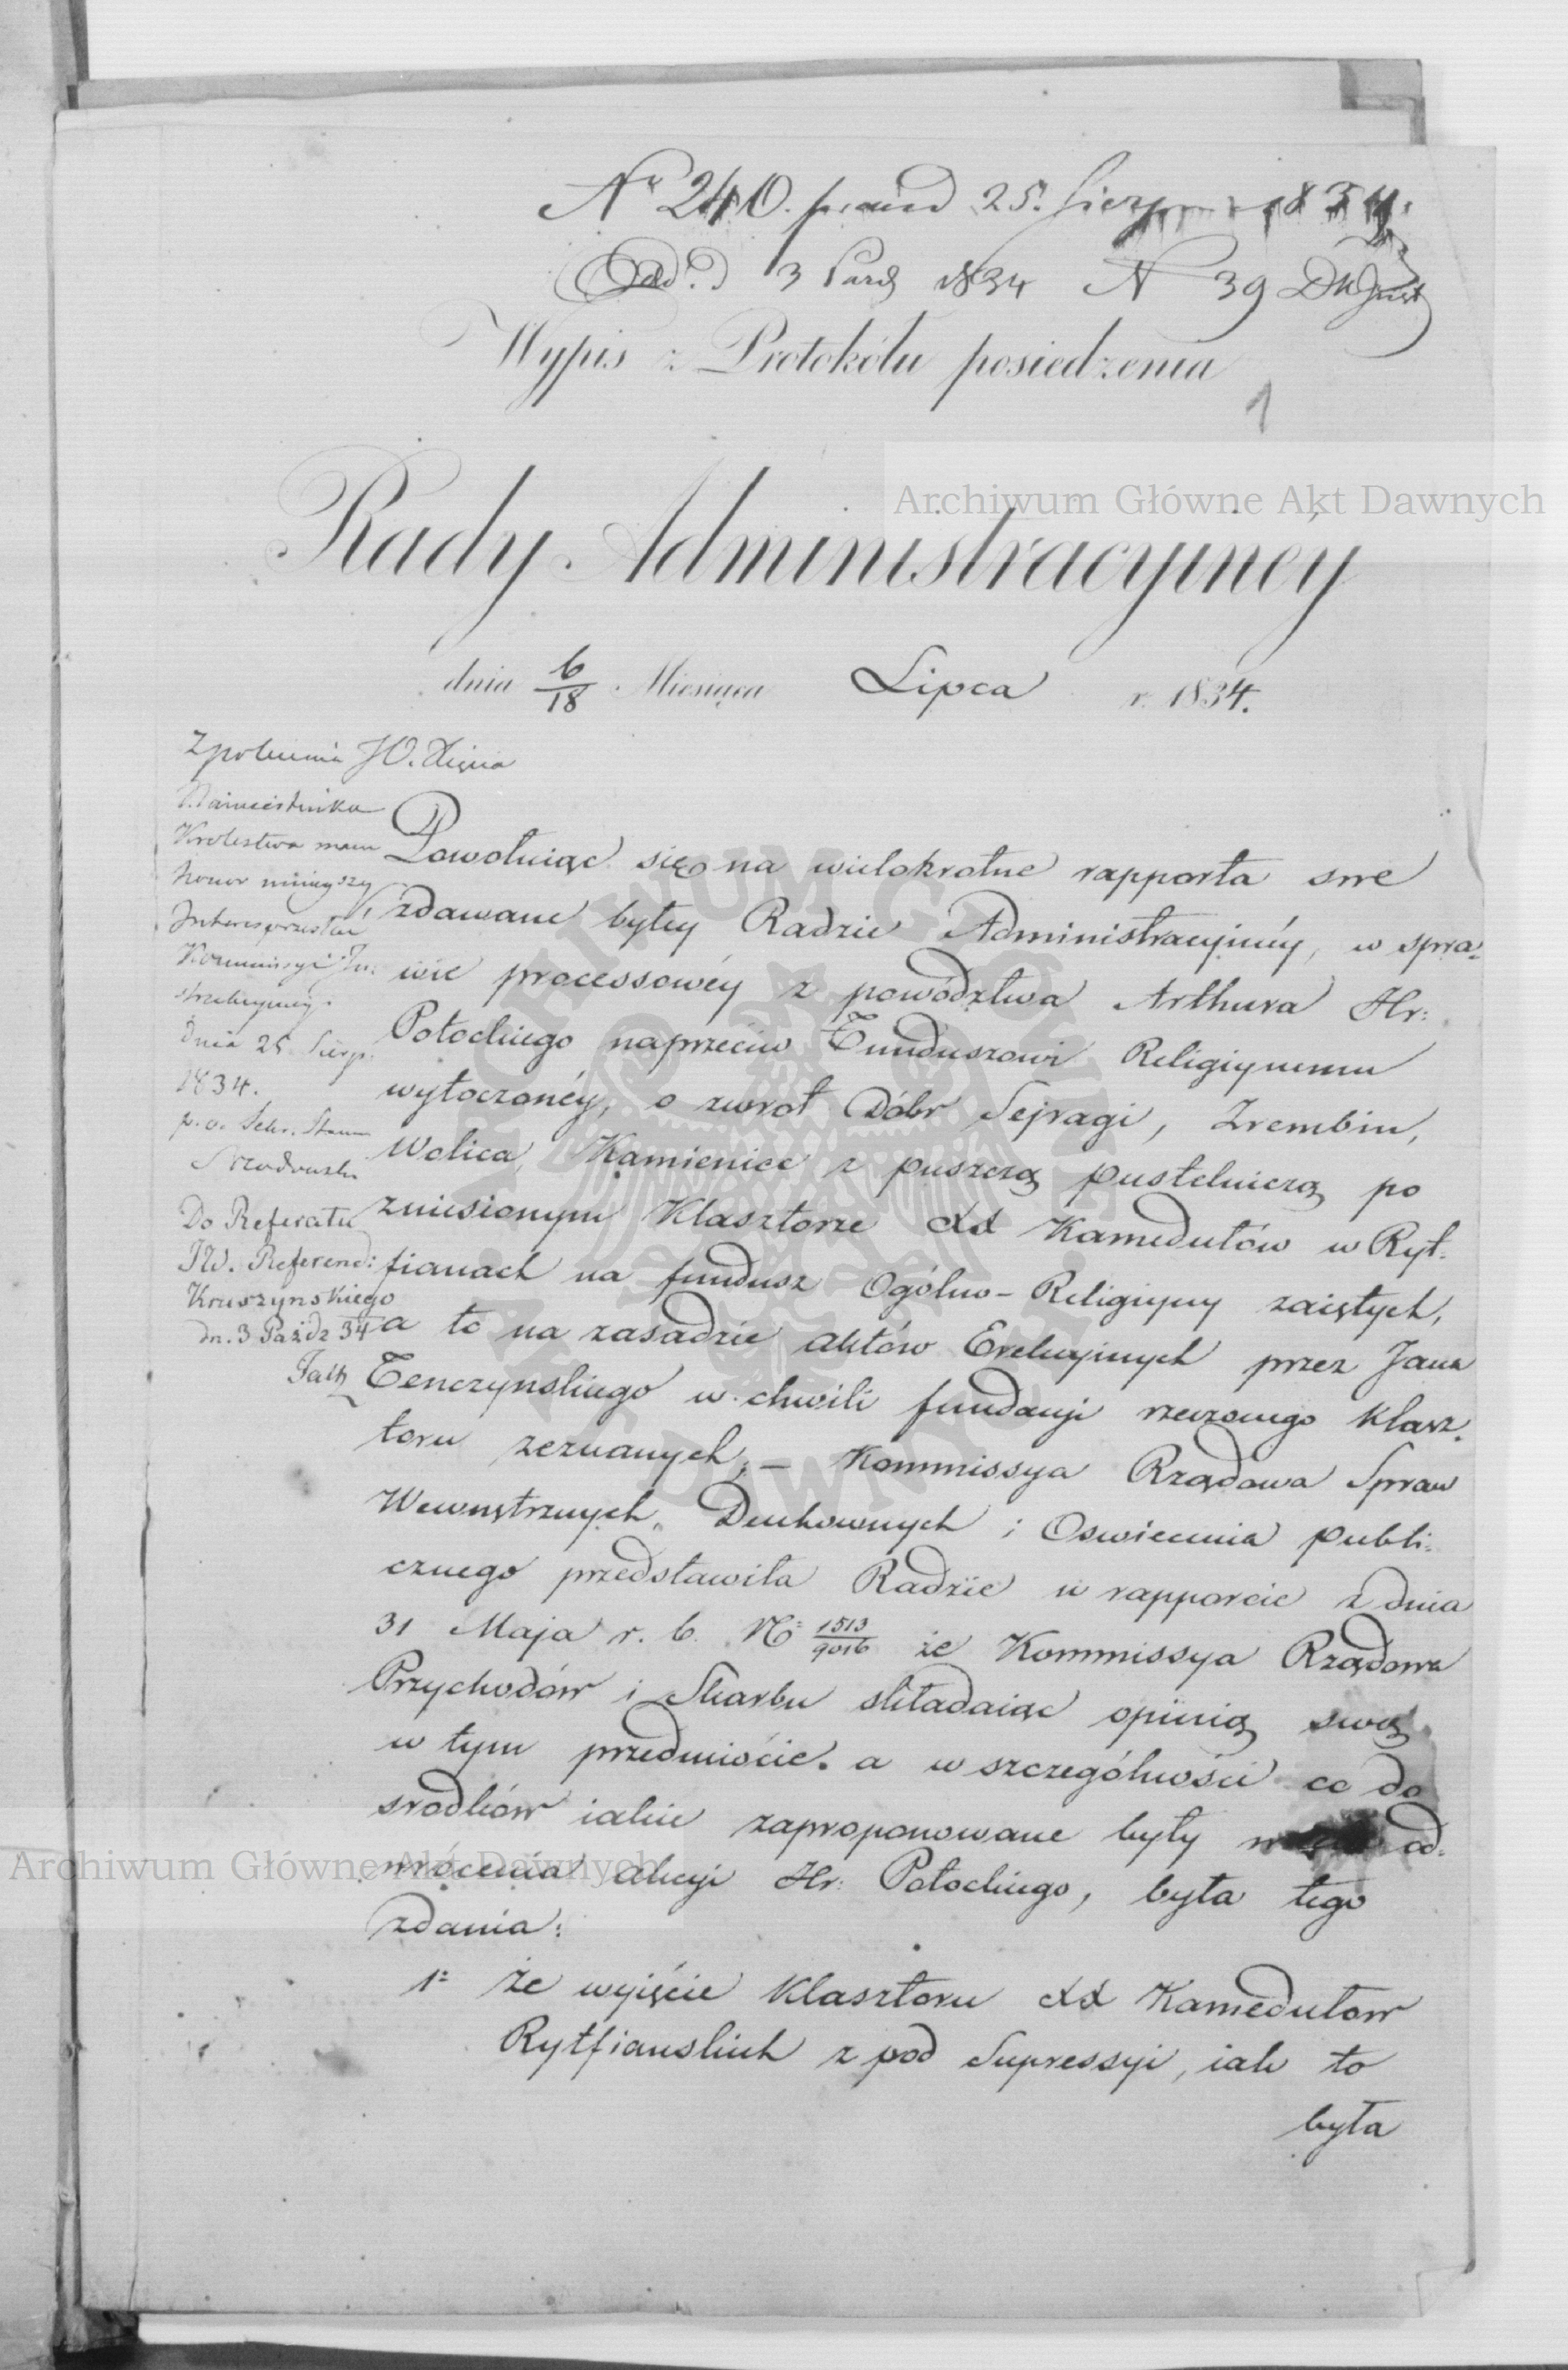 Nr 240. 25. Sierpnia 1834.
Odd. 3 Paźdz 1834 N 39
Wypis z Protokółu posiedzenia
1
Archiwum Główne Akt Dawnych
Rady Administracyjnéy
dnia 6/18 Miesiąca Lipca r. 1834.
Z polecenia JO. Xięcia
Namiestnika
Krolestwa mam
honor ninieyszy
Interes przesłać
Kommissyi In=
strukcyjnéy.
dnia 25 Sierp.
1834.
p. o. Sekr. Stanu
Do Referatu
JW. Referend:
Kruszynskiego
dn. 3 Paźdz 34
Powołuiąc się na wielokrotne rapporta swe
zdawane byłey Radzie Administracyjnéy, w spra=
wie processowéy z powództwa Arthura Hr:
Potockiego naprzeciw Funduszowi Religiynemu
wytoczonéy, o zwrot Dóbr Sejragi, Zrembin,
Wolica, Kamieniec z puszczą pustelniczą po
zniesionym Klasztorze XX Kamedułów w Ryt=
fianach na fundusz Ogólno-Religiyny zaiętych,
a to na zasadzie aktów Erekcyjnych przez Jana
Tenczynskiego w chwili fundacyi rzeczonego Klasz=
toru zeznanych; — Kommissya Rządowa Spraw
Wewnętrznych, Duchownych i Oswiecenia publi=
cznego przedstawiła Radzie w rapporcie z dnia
31 Maja r. b. No 1513/9016 że Kommissya Rządowa
Przychodów i Skarbu składaiąc opinią swą
w tym przedmiocie. a w szczególności co do
srodków iakie zaproponowane były od=
wrócenia akcyi Hr: Potockiego, była tego
Archiwum Główne Akt Dawnych
zdania:
1o Że wyięcie Klasztoru XX Kamedułow
Rytfianskich z pod Supressyi, iak to
była